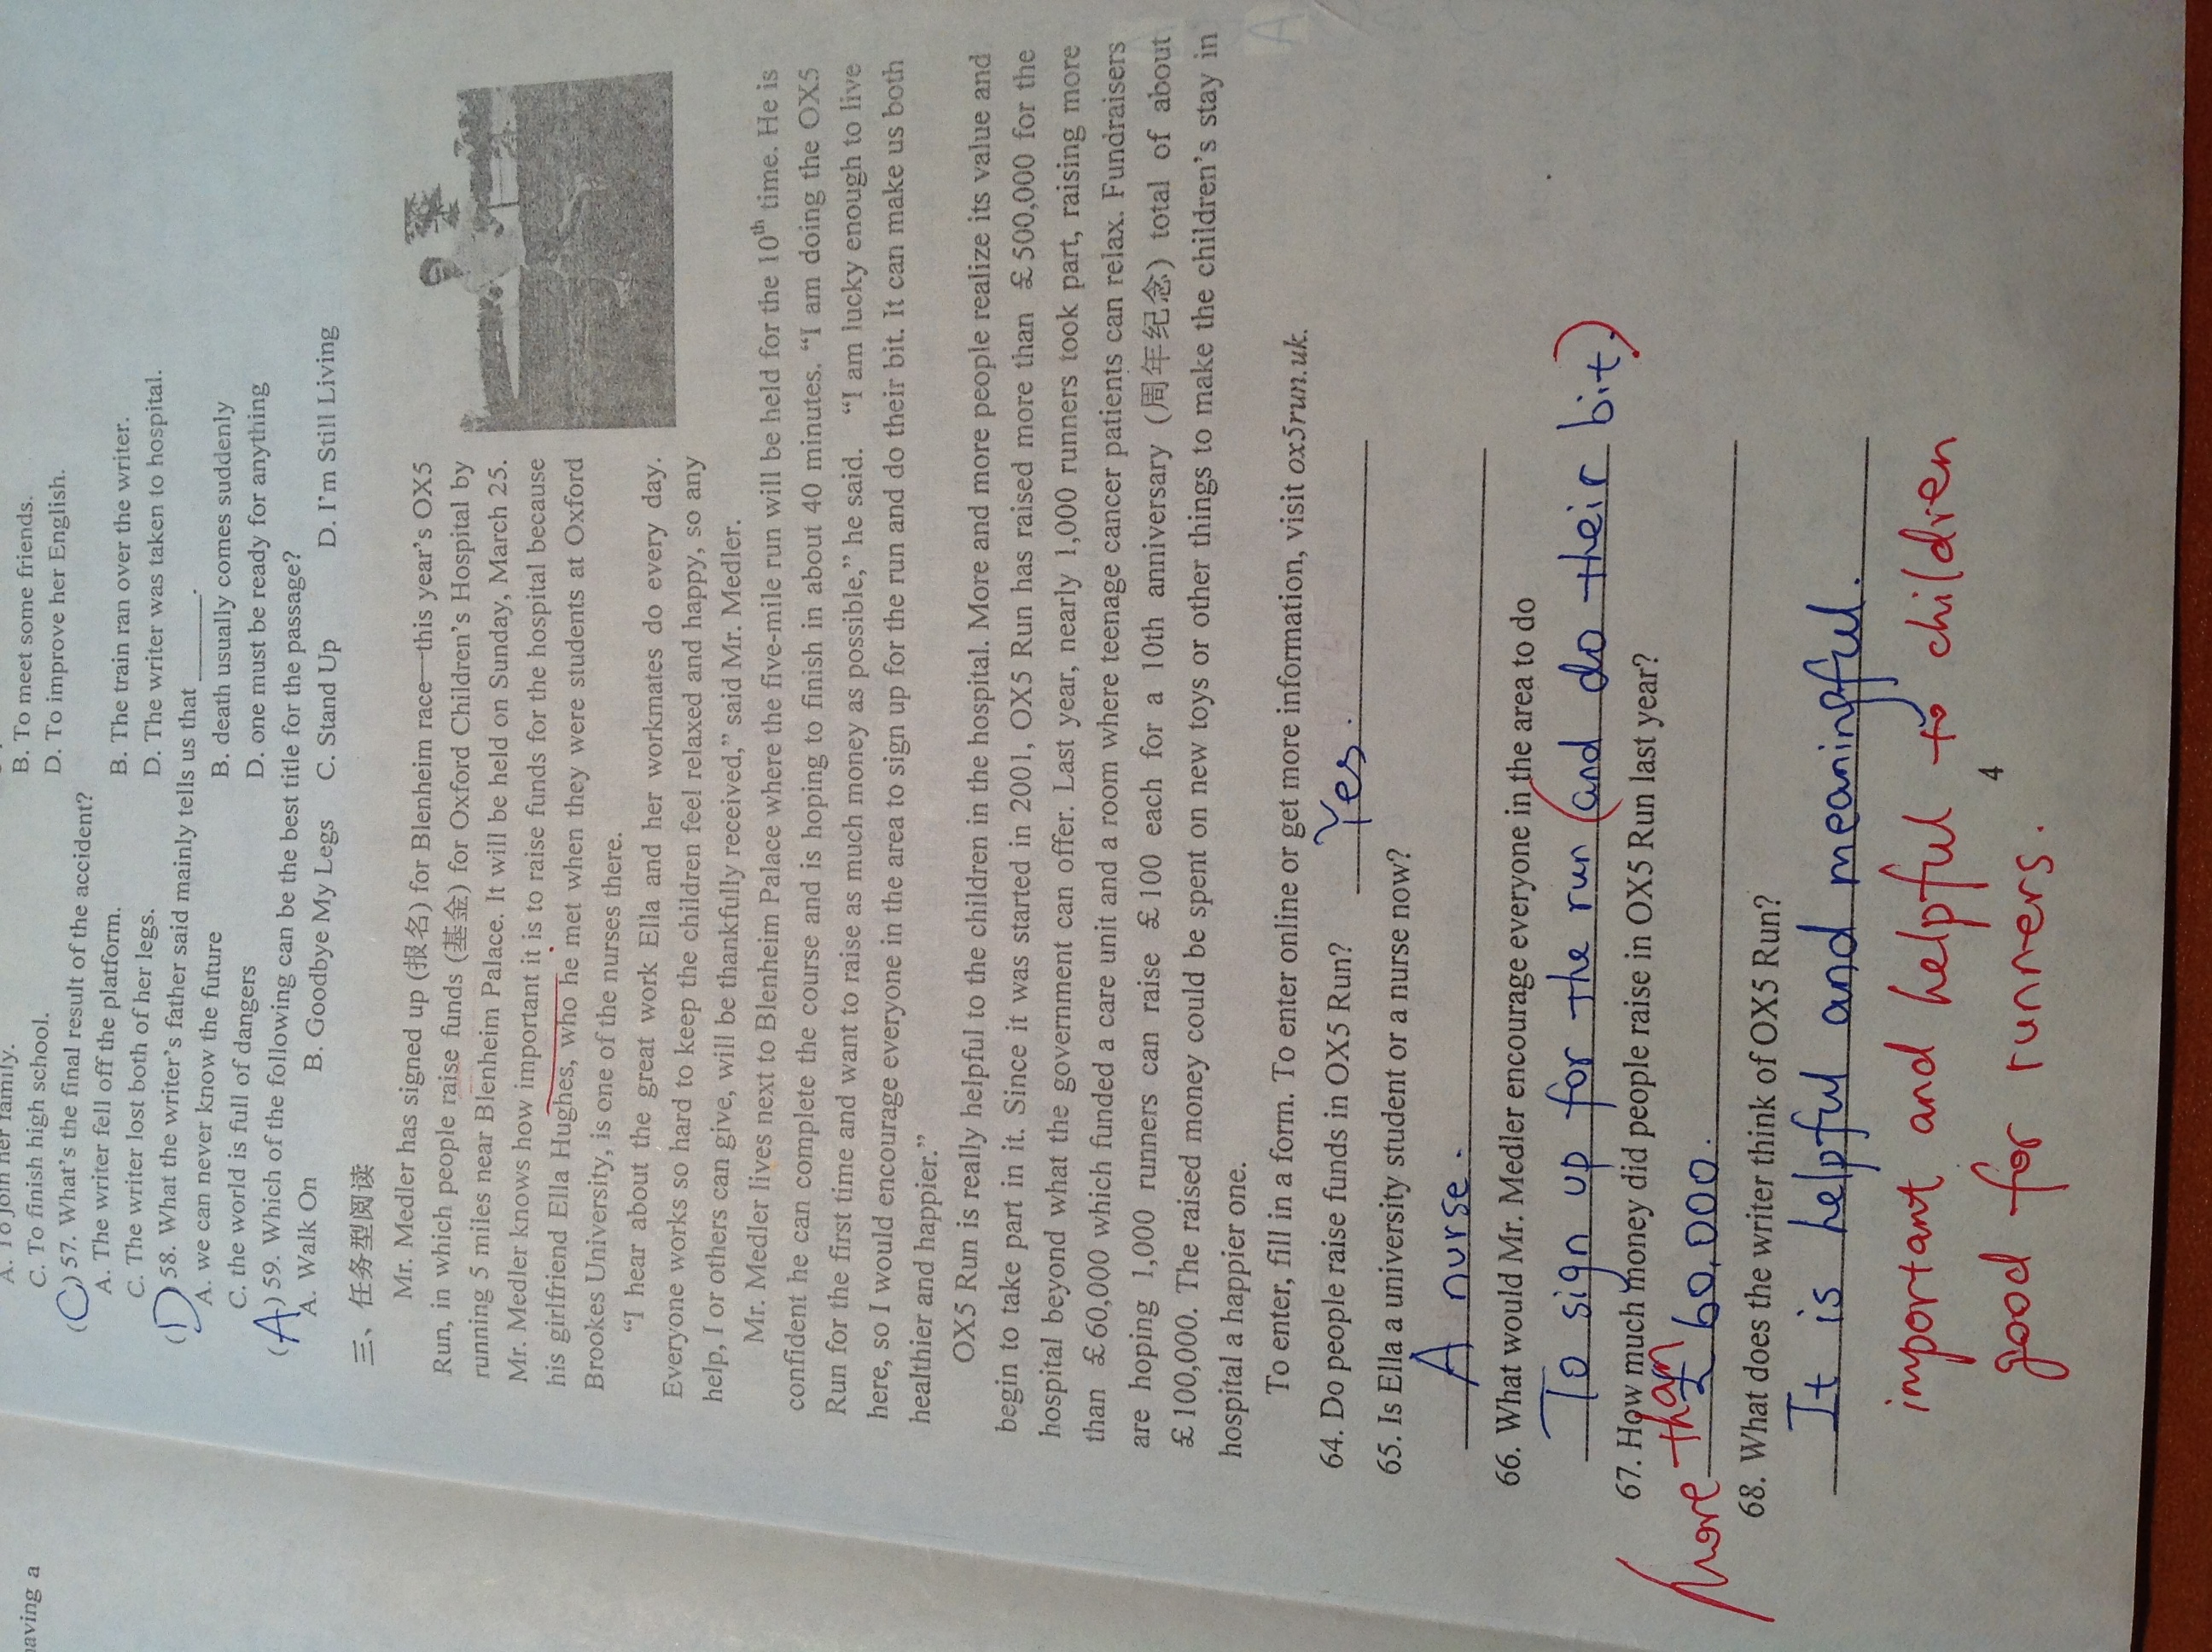 having a
A. To join her family.
B. To meet some friends.
C. To finish high school.
D. To improve her English.
(C) 57. What's the final result of the accident?
A. The writer fell off the platform.
B. The train ran over the writer.
C. The writer lost both of her legs.
D. The writer was taken to hospital.
(D) 58. What the writer's father said mainly tells us that ______.
A. we can never know the future
B. death usually comes suddenly
C. the world is full of dangers
D. one must be ready for anything
(A) 59. Which of the following can be the best title for the passage?
A. Walk On B. Goodbye My Legs C. Stand Up D. I'm Still Living
三、任务型阅读
Mr. Medler has signed up (报名) for Blenheim race—this year's OX5
Run, in which people raise funds (基金) for Oxford Children's Hospital by
running 5 miles near Blenheim Palace. It will be held on Sunday, March 25.
Mr. Medler knows how important it is to raise funds for the hospital because
his girlfriend Ella Hughes, who he met when they were students at Oxford
Brookes University, is one of the nurses there.
“I hear about the great work Ella and her workmates do every day.
Everyone works so hard to keep the children feel relaxed and happy, so any
help, I or others can give, will be thankfully received,” said Mr. Medler.
Mr. Medler lives next to Blenheim Palace where the five-mile run will be held for the 10th time. He is
confident he can complete the course and is hoping to finish in about 40 minutes. “I am doing the OX5
Run for the first time and want to raise as much money as possible,” he said. “I am lucky enough to live
here, so I would encourage everyone in the area to sign up for the run and do their bit. It can make us both
healthier and happier.”
OX5 Run is really helpful to the children in the hospital. More and more people realize its value and
begin to take part in it. Since it was started in 2001, OX5 Run has raised more than £500,000 for the
hospital beyond what the government can offer. Last year, nearly 1,000 runners took part, raising more
than £60,000 which funded a care unit and a room where teenage cancer patients can relax. Fundraisers
are hoping 1,000 runners can raise £100 each for a 10th anniversary (周年纪念) total of about
£100,000. The raised money could be spent on new toys or other things to make the children's stay in
hospital a happier one.
To enter, fill in a form. To enter online or get more information, visit ox5run.uk.
64. Do people raise funds in OX5 Run? Yes.
65. Is Ella a university student or a nurse now?
A nurse.
66. What would Mr. Medler encourage everyone in the area to do
To sign up for the run (and do their bit.)
67. How much money did people raise in OX5 Run last year?
More than £60,000.
68. What does the writer think of OX5 Run?
It is helpful and meaningful.
important and helpful to children
good for runners.
4